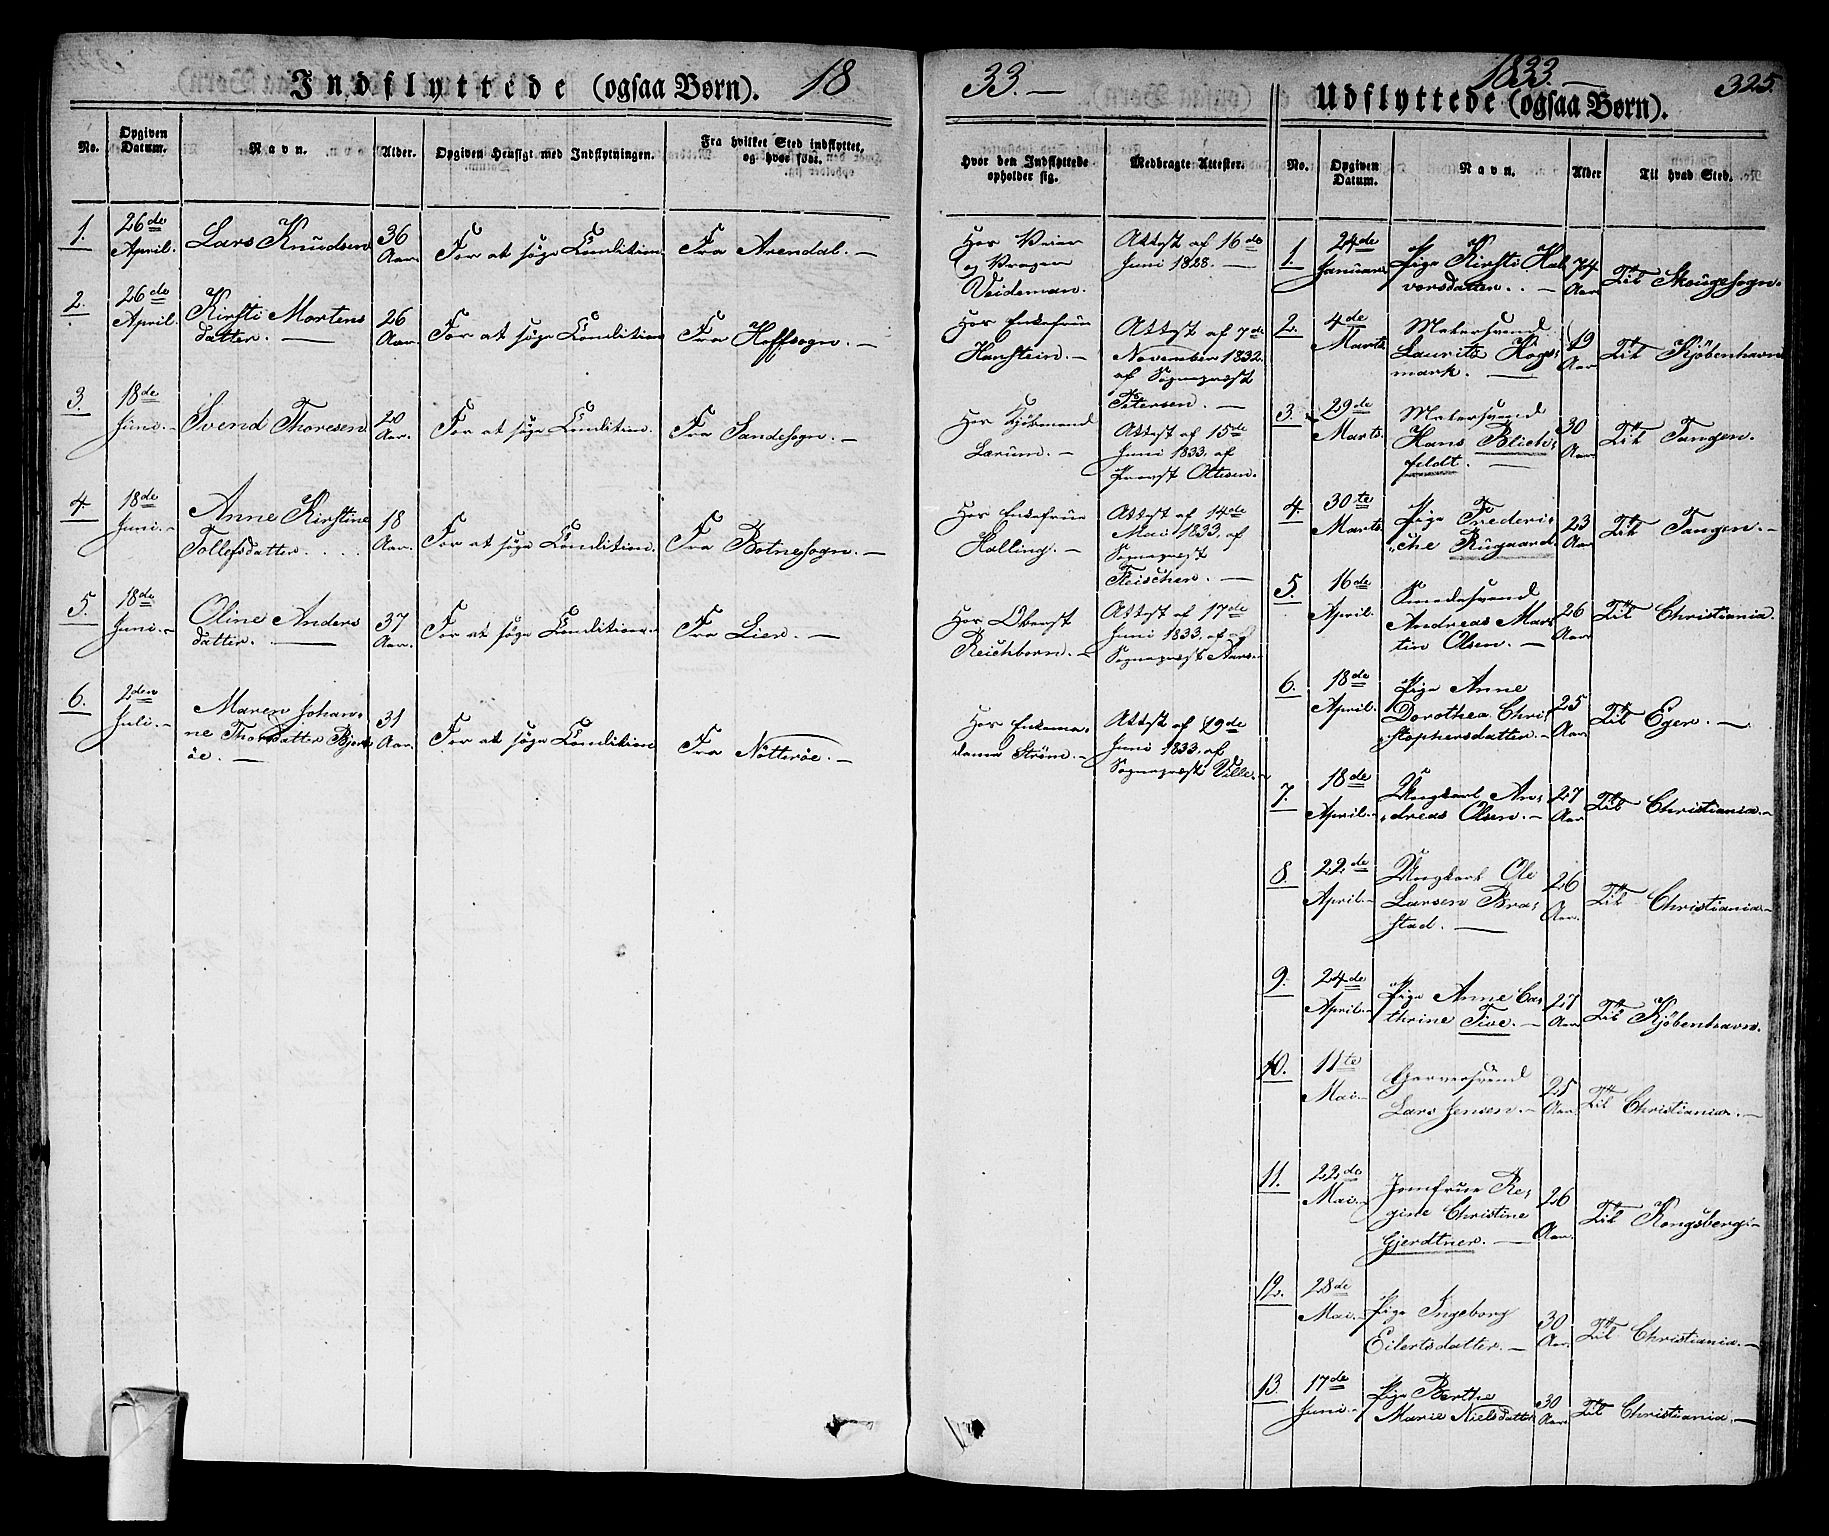 Indflyttede (ogsaa Børn). 18
33. —
No.
Opgiven Datum.
Navn.
Alder.
Opgiven Hensigt med Indflytningen.
Fra hvilket Sted indflyttet,
og hvor født.
Hvor den Indflyttede
opholder sig.
Medbragte Attester.
1. 26de April. Lars Knudsen 36 Aar. For at søge Condition Fra Arendal. —
Hos Veier
og Vrager
Veideman.
Attest af 16de
Juni 1828. —
2. 26de April. Kirsti Mortens
datter. — 26 Aar. For at søge Condition Fra Hoffsogn. —
Hos Enkefrüe
Hanstein. —
Attest af 7de
November 1832.
af Sognepræst
Petersen. —
3. 18de Juni. Svend Thoresen 20 Aar. For at søge Condition. Fra Sandesogn. —
Hos Kjöbmand
Lærum. —
Attest af 15de
Juni 1833. af
Provst Ottesen.
4. 18de Juni. — Anne Kirstine
Tollefsdatter. 18 Aar. For at søge Condition. Fra Botnesogn. —
Hos Enkefrüe
Holling. —
Attest af 14de
Mai 1833. af
Sognepræst
Fleischer. —
5. 18de Juni. — Oline Anders
datter. — 37 Aar. For at søge Condition. Fra Lier. —
Hos Oberst
Reichborn. —
Attest af 17de
Juni 1833. af
Sognepræst Aars. —
6. 2den Juli. — Maren Johan-
ne Thorsdatter Bjerk
öe. — 31 Aar. For at søge Condition Fra Nötteröe. —
Hos Enkema-
dame Ström. —
Attest af 29de
Juni 1833. af
Sognepræst Wille. —
1833 — 325.
Udflyttede (ogsaa Børn).
No.
Opgiven Datum.
Navn.
Alder
Til hvad Sted.
1. 24de Januar. Pige Kirsti Hal
vorsdatter. — 74 Aar Til Skougesogn.
2. 4de Marts Malersvend
Lauritz Hogs-
mark. — 19 Aar Til Kjöbenhavn
3. 29de Marts. Malersvend
Hans Blich-
feldt. — 30 Aar Til Tangen.
4. 30te Marts Pige Frederi-
che Rügaard. 23 Aar Til Tangen. —
5. 16de April. Smedesvend
Andreas Mar-
tin Olsen. — 26 Aar Til Christiania.
6. 18de April. Pige Anne
Dorothea Chri-
stophersdatter. — 25 Aar Til Eger. —
7. 18de April. — Ungkarl An-
dreas Olsen. — 27 Aar Til Christiania. —
8. 22de April. — Ungkarl Ole
Larsen Bra-
stad. — 26 Aar. Til Christiania. —
9. 24de April. — Pige Anne Ca-
thrine Tive. — 27 Aar Til Kjöbenhavn.
10. 11te Mai. — Garversvend
Lars Jensen. — 25 Aar Til Christiania. —
11. 22de Mai. — Jomfrue Re-
gine Christine
Gjerdtner. — 26 Aar. Til Kongsberg. —
12. 28de Mai. — Pige Ingeborg
Eilertsdatter. — 30 Aar. Til Christiania. —
13. 17de Juni. — Pige Berthe
Marie Nielsdatter 30 Aar. Til Christiania. —